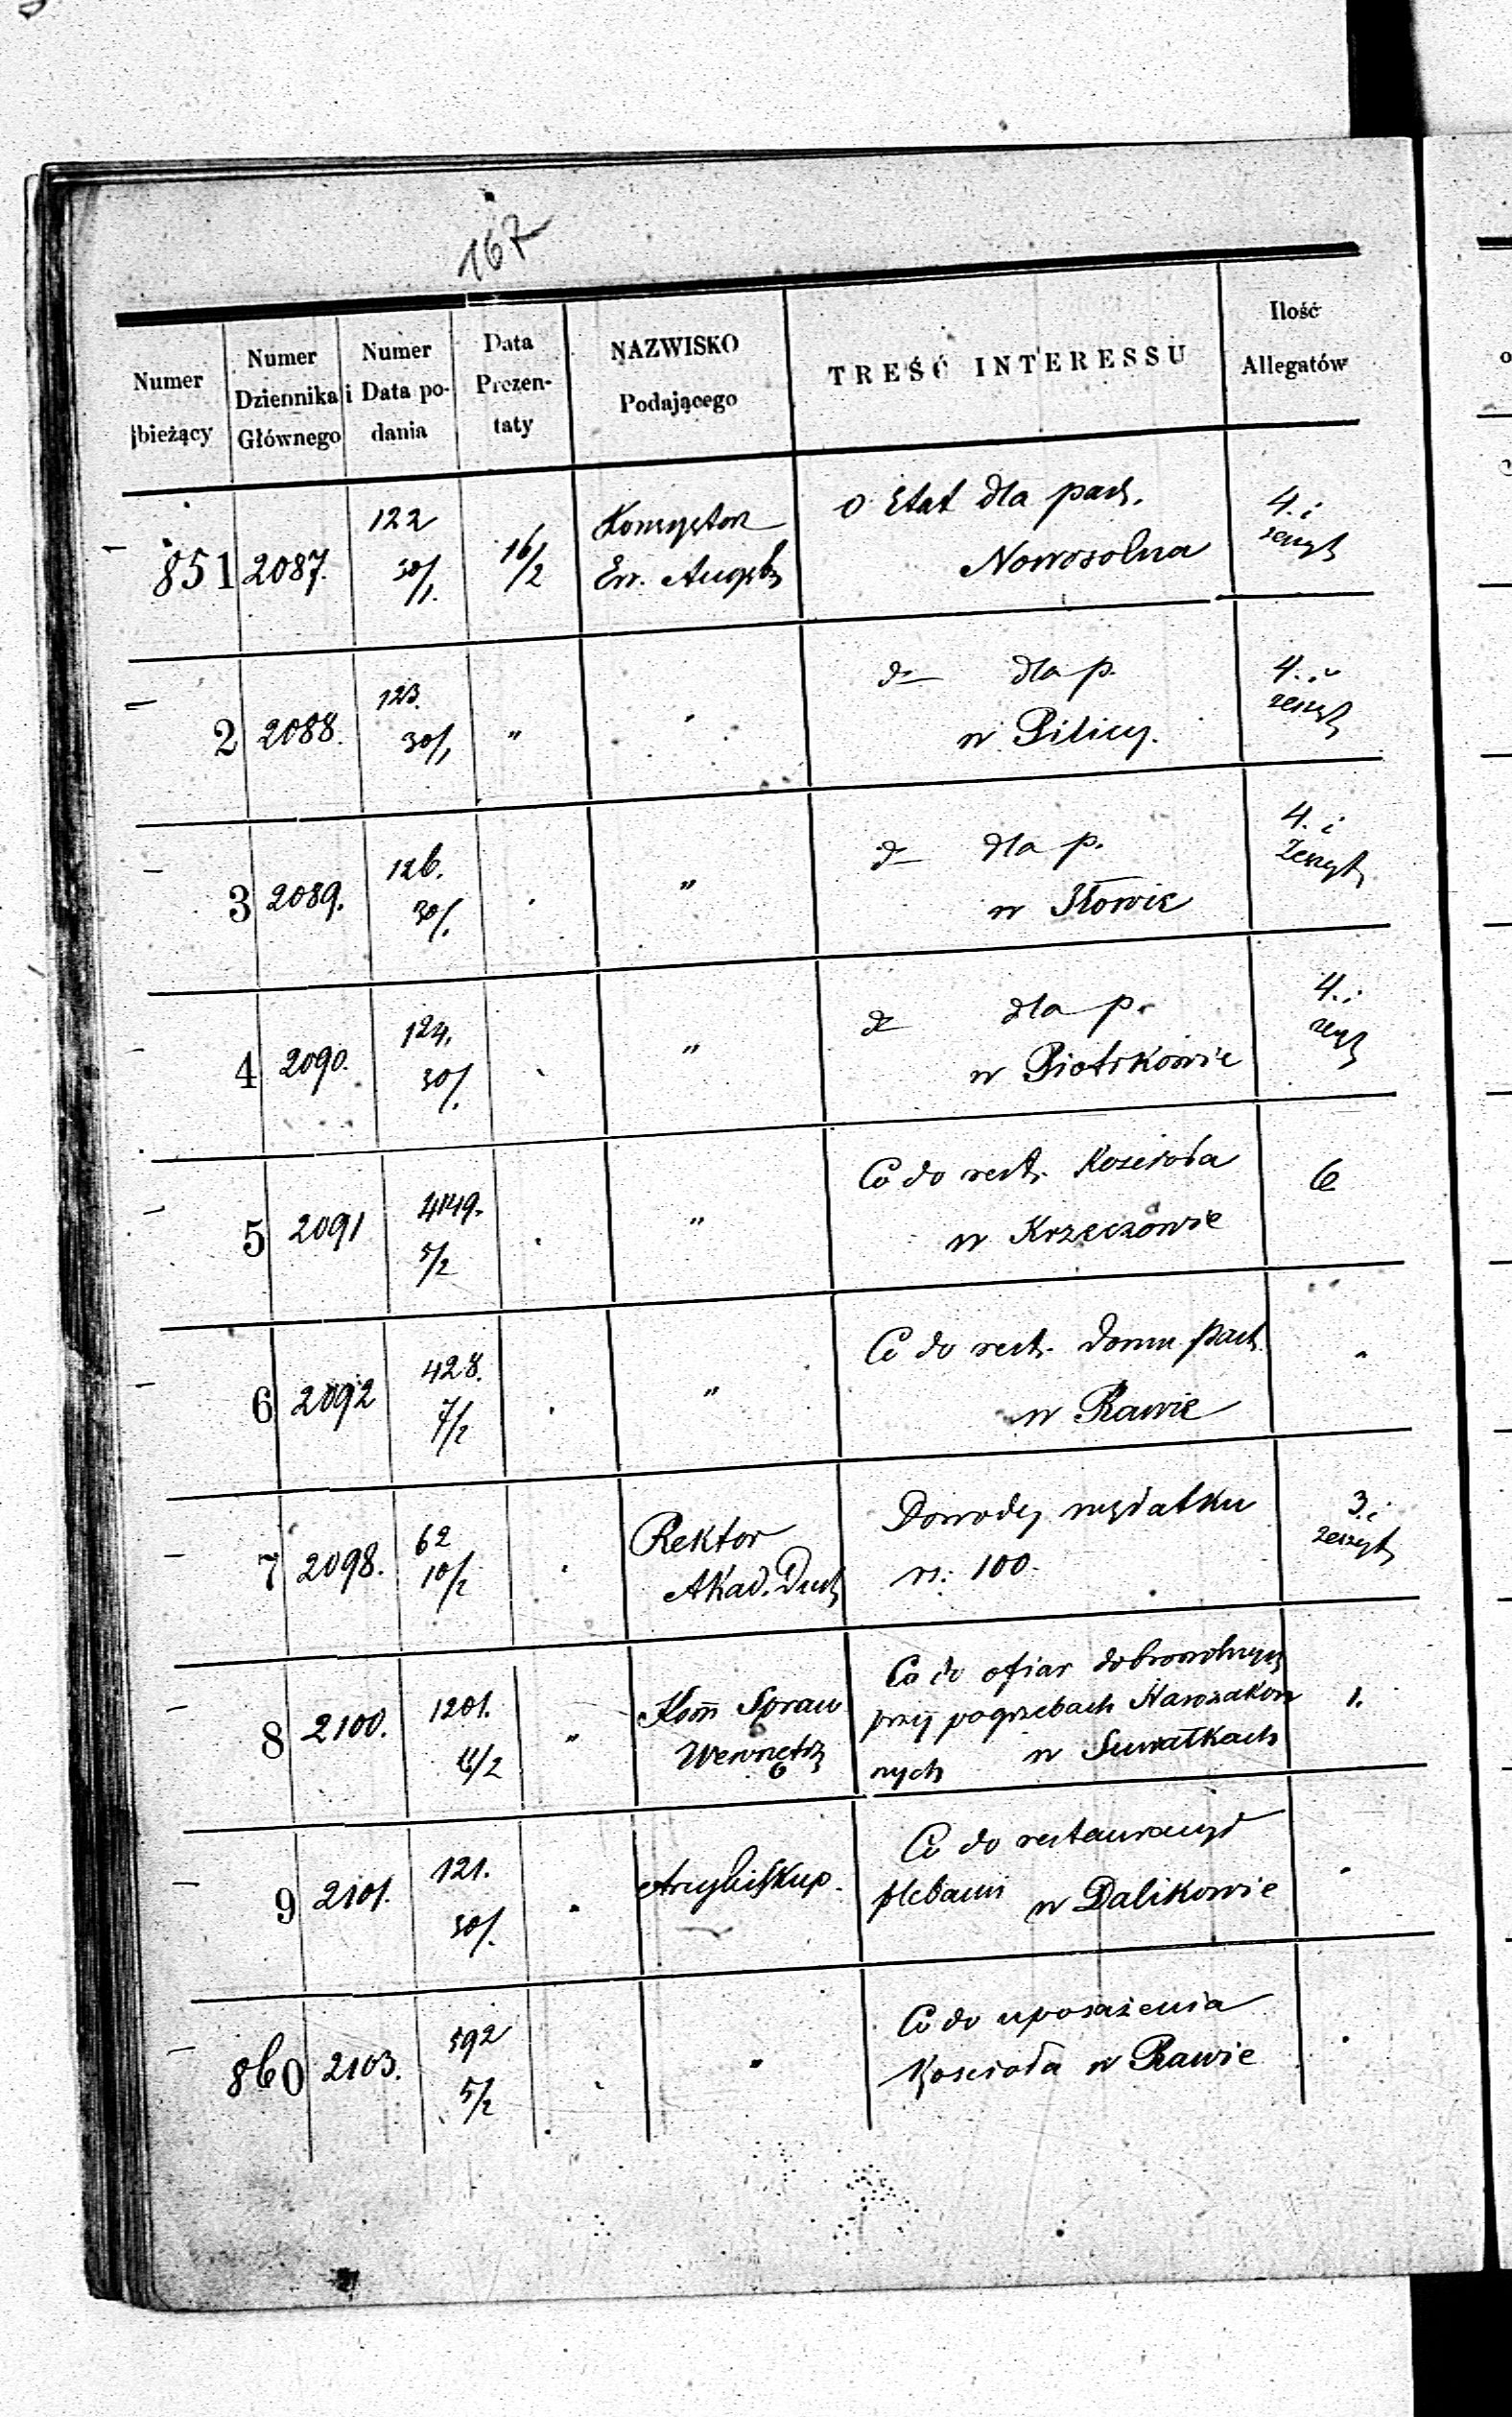 167
Numer bieżący
Numer Dziennika Głównego
Numer i Data podania
Data Prezentaty
NAZWISKO Podającego
TREŚĆ INTERESSU
Ilość Allegatów
851 2087. 122 30/1. 16/2 Konsystorz Ew. Augsb O Etat dla par. Nowosolna 4. i zeszyt
2 2088. 123. 30/1 " " do dla p. w Pilicy. 4. i zeszyt
3 2089. 126. 30/1. " " do dla p. w Iłowie 4. i Zeszyt
4 2090. 124. 30/1. " " do dla p. w Piotrkowie 4. i zeszyt
5 2091 5/2 " " Co do rest. Kościoła w Krzeczowie 6
6 2092 428. 7/2 " " Co do rest. Domu par. w Rawie "
7 2098. 62 10/2 " Rektor Akad. Duch Dowody wydatku rs. 100. 3. i zeszyt
8 2100. 1201. /2 " Kom Spraw Wewnętrz Co do ofiar dobrowolnych przy pogrzebach Starozakonnych w Suwałkach 1.
9 2101. 121. 30/1. " Arcybiskup. Co do restauracyi plebanii w Dalikowie "
860 2103. 592 5/2 " " Co do uposażenia Kościoła w Rawie "